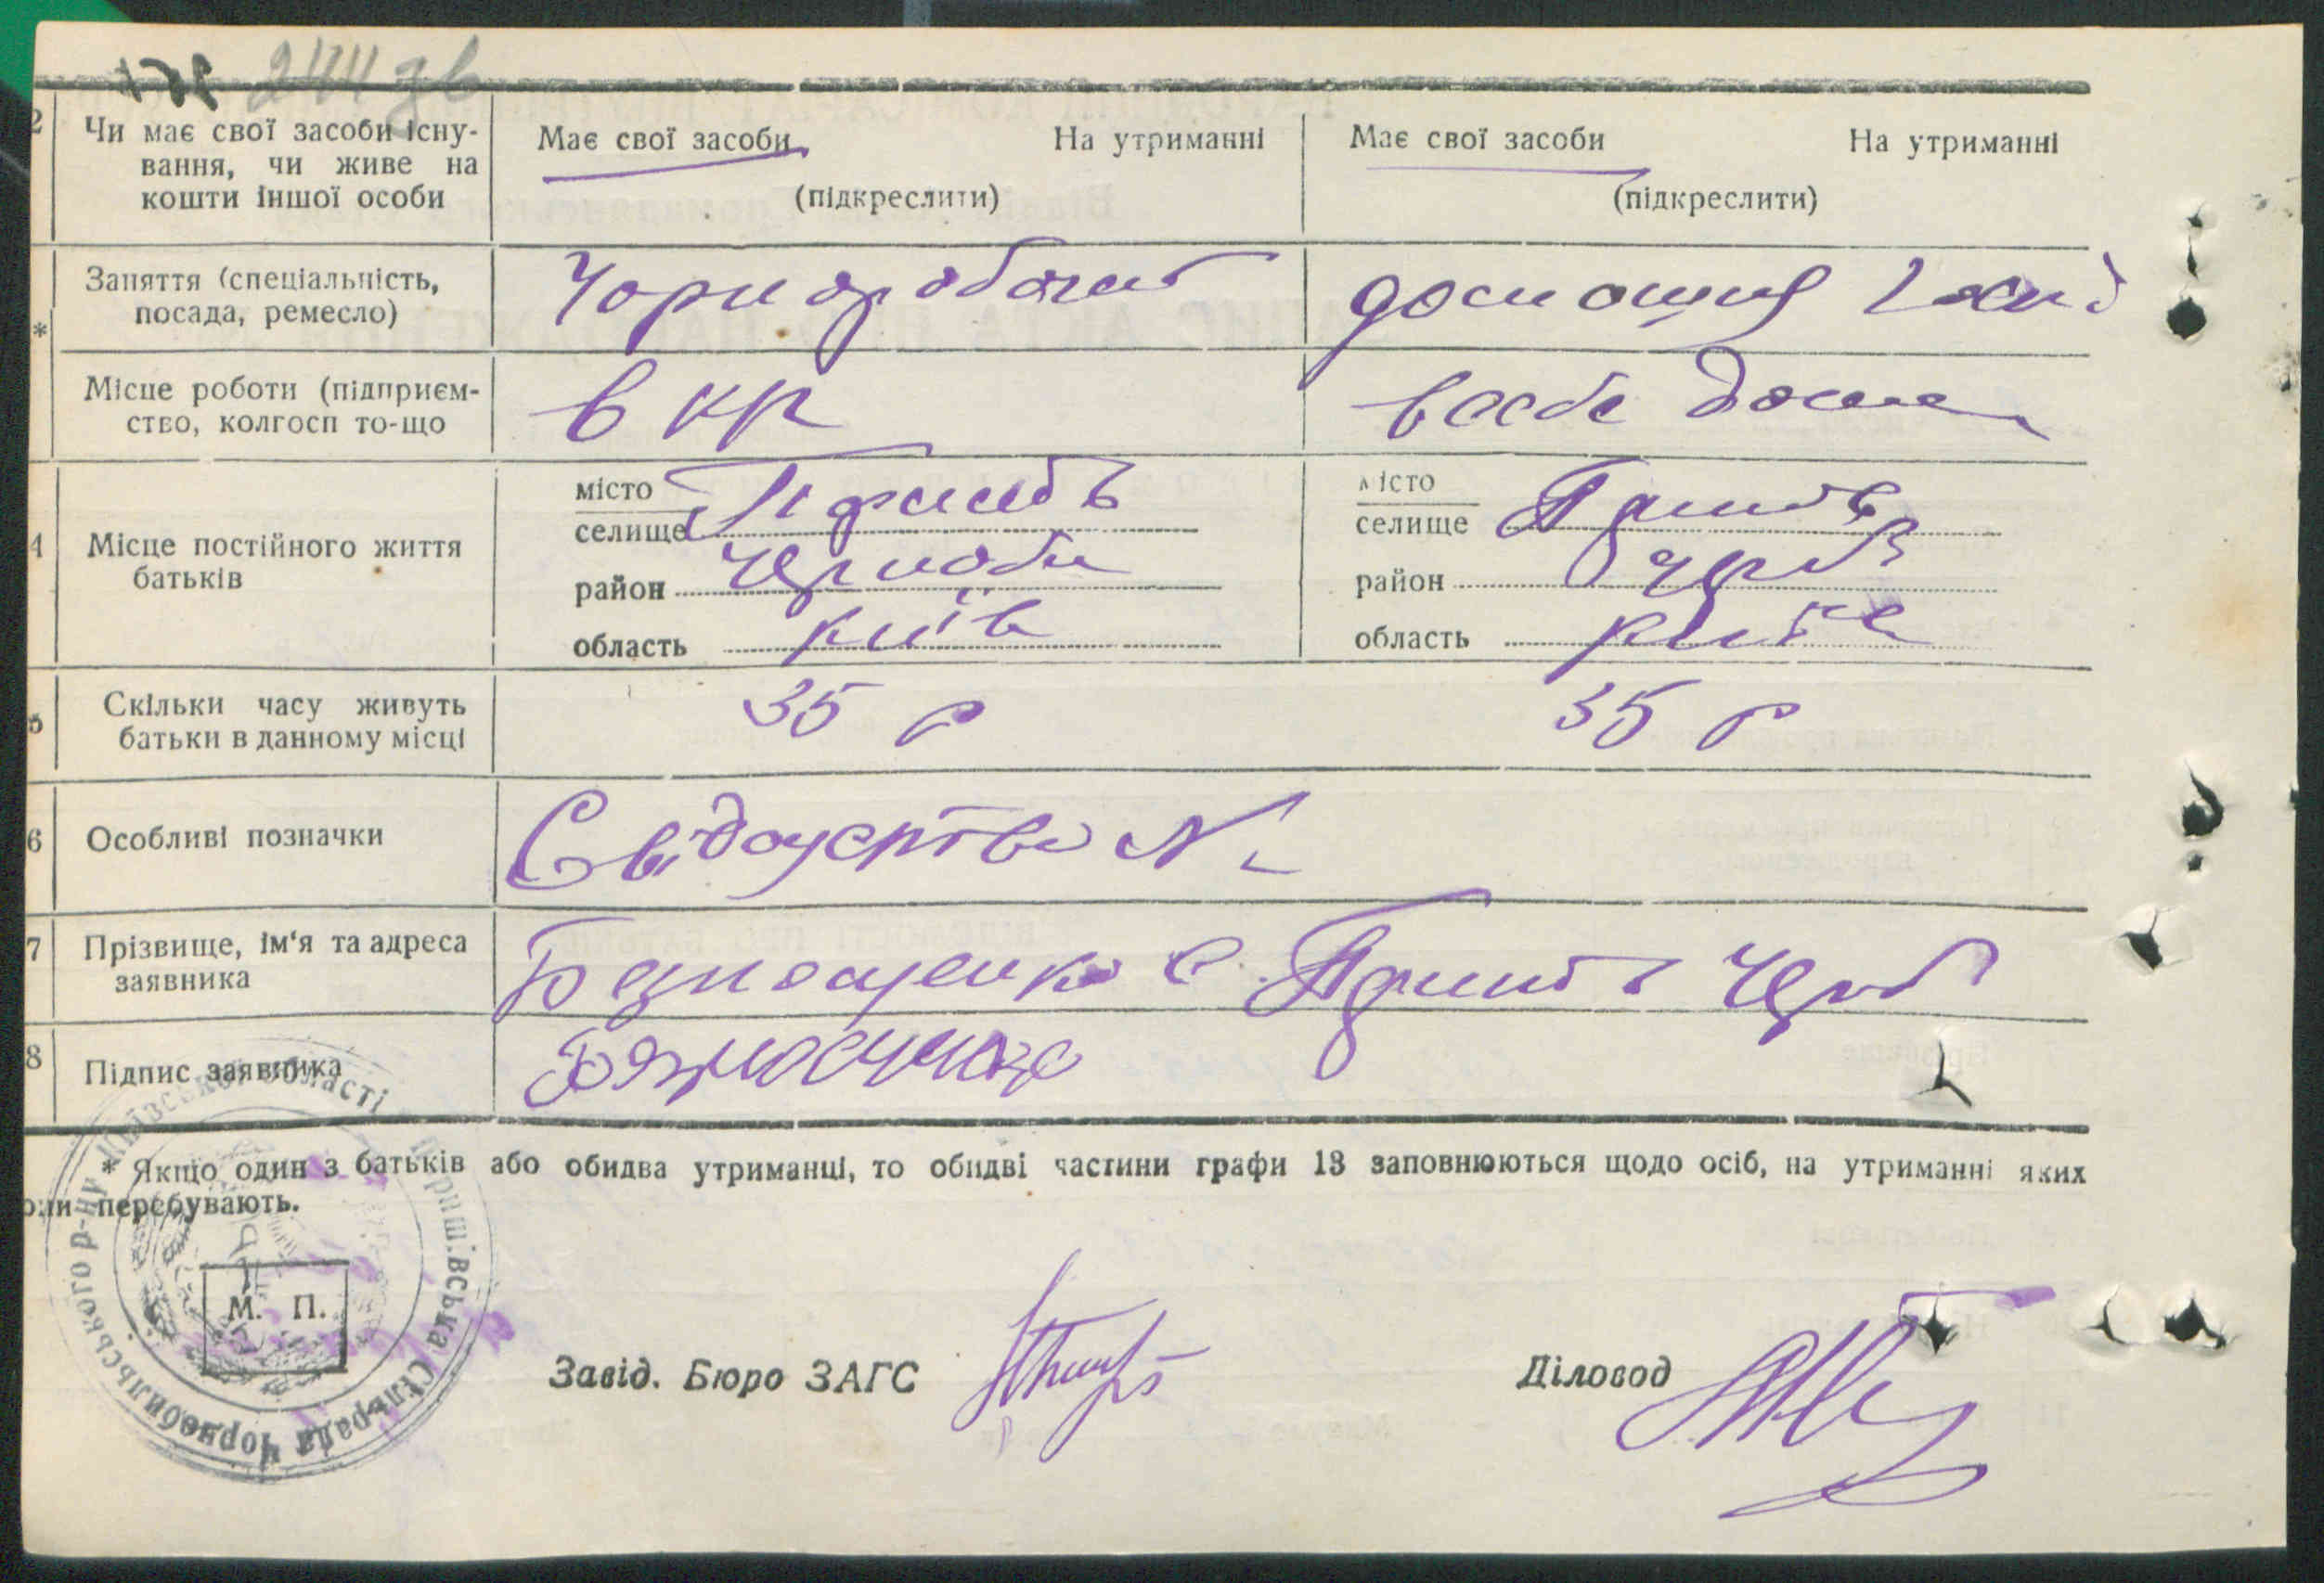 244 зв
2
Чи має свої засоби існу-
вання, чи живе на
кошти іншої особи
Має свої засоби
На утриманні
(підкреслити)
Має свої засоби
На утриманні
(підкреслити)
*
Заняття (спеціальність,
посада, ремесло)
Чорноробочий
домашня
Місце роботи (підприєм-
ство, колгосп то-що
в
в себе дома
4
Місце постійного життя
батьків
місто
селище
район Чорноби
область Київ
місто
селище
район
область
5
Скільки часу живуть
батьки в данному місці
35 р
35 р
6
Особливі позначки
Свідоцтво №
7
Прізвище, ім'я та адреса
заявника
8
Підпис заявника
* Якщо один з батьків або обидва утриманці, то обидві частини графи 13 заповнюються щодо осіб, на утриманні яких
они перебувають.
М. П.
Завід. Бюро ЗАГС
Діловод
сільрада Чорнобильського р-ну Київської області